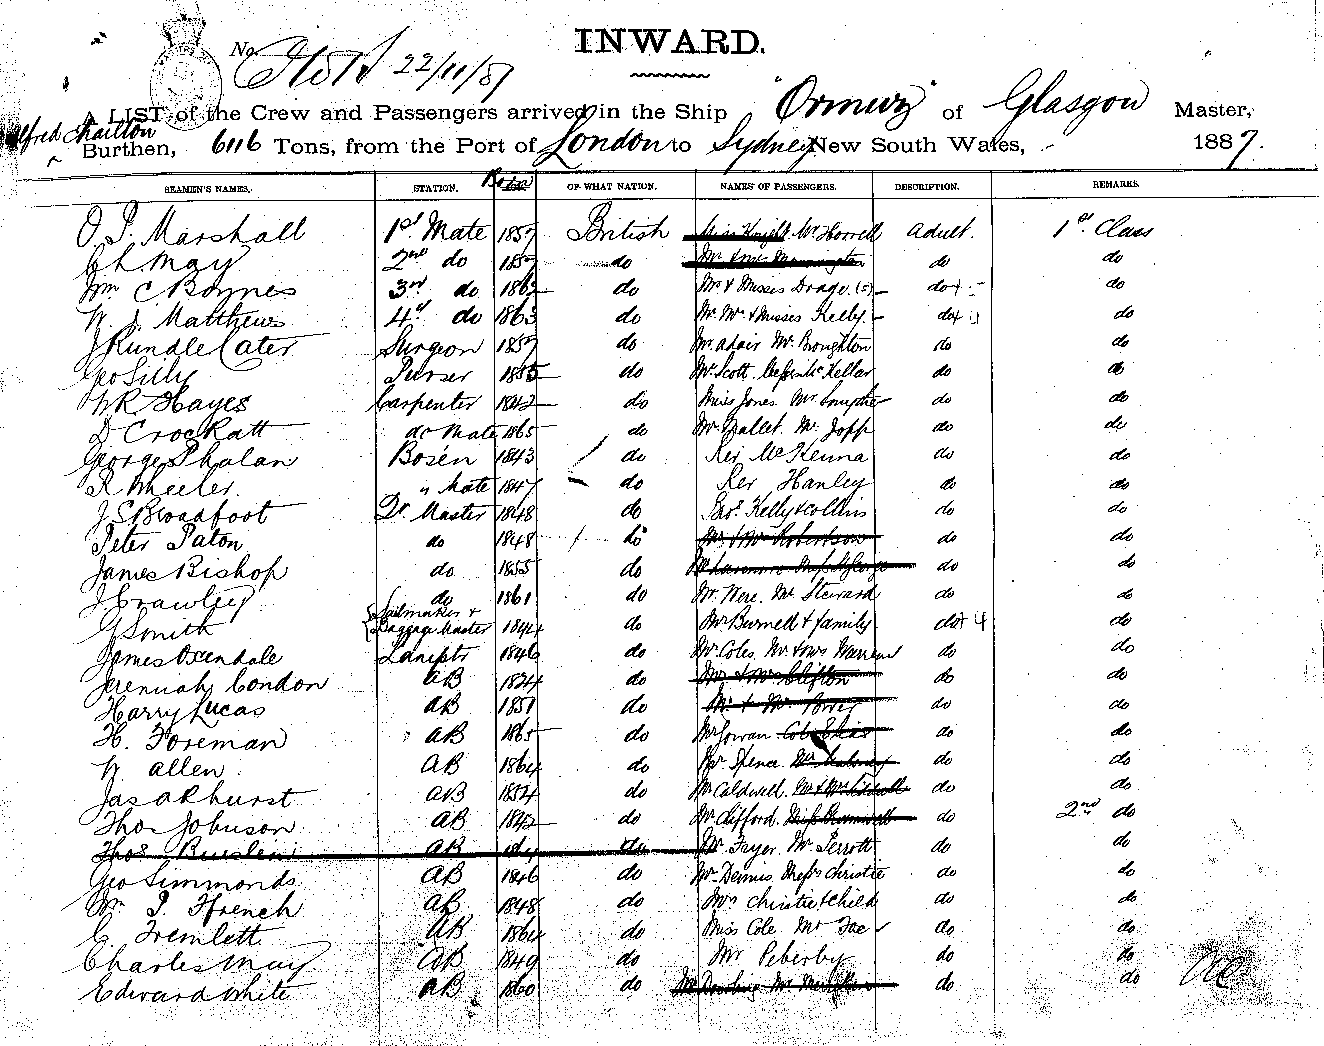 INWARD.
No 22/11/87
A LIST of the Crew and Passengers arrived in the Ship "Ormuz" of Glasgow Master,
Alfred Charlton
Burthen, 6116 Tons, from the Port of London to Sydney New South Wales, 1887.
SEAMEN'S NAMES. STATION. Born OF WHAT NATION. NAMES OF PASSENGERS. DESCRIPTION. REMARKS.
O. P. Marshall 1st Mate 1857 British Miss Knight Mr Horrell Adult. 1st Class
C L May 2nd do 1857 do do do
Wm C Boynes 3rd do 1862 do Mr & Misses Drago do + do
W J Matthews 4th do 1863 do Mr Mrs & Misses Kelly do + do
J Rundle Cater Surgeon 1857 do Mr Adair Mr Broughton do do
Geo Silly Purser 1855 do Mr Scott McKellar do do
W R Hayes Carpenter 1842 do Miss Jones Mr Smythe do do
D Crockatt do Mate 1865 do Mr Mr Jopp do do
George Phalan Bosen 1843 do Rev McKenna do do
R Wheeler " Mate 1847 do Rev Hanley do do
J S Broadfoot Qr Master 1848 do Bros Kelly & Collins do do
Peter Paton do 1848 do Mr & Mrs Robertson do do
James Bishop do 1855 do do do
J Crawley do 1861 do Mr Were. Mr Steward do do
G Smith Sailmaker & Baggage Master 1844 do Mr Burnell & family do + 4 do
James Oxendale Lamptr 1846 do Mr Coles Mr & Mrs Warren do do
Jeremiah Condon AB 1824 do Mr & Mrs Clifton do do
Harry Lucas AB 1851 do Mr & Mrs do do
H. Foreman AB 1865 do Mr Gowan do do
W Allen AB 1864 do Mr Spence do do
Jas Akhurst AB 1854 do Mr Caldwell. do do
Thos Johnson AB 1842 do Mr Clifford. do 2nd do
Thos AB do Mr Fryer. Mr Perrott do do
Geo Simmonds AB 1846 do Mr Dennis Messrs Christie do do
Wm J. Ffrench AB 1848 do Mrs Christie & child do do
C. Tremlett AB 1864 do Miss Cole Mr do do
Charles May AB 1849 do Mr Peberby do do
Edward White AB 1860 do Mr Dowling Mr do do